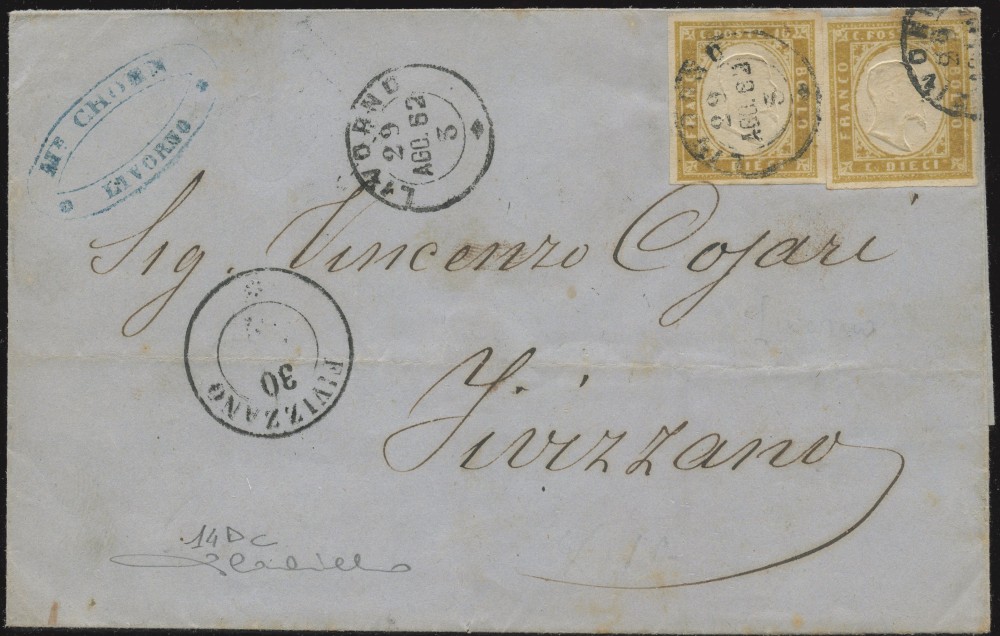 ME CHOEN
LIVORNO
LIVORNO
29
AGO. 62
3
C. POS
FRANCO
BOLLO
C. DIECI
LIVORNO
29
AGO. 62
3
C. POS
FRANCO
BOLLO
C. DIECI
Sig. Vincenzo Cojari
Fivizzano
FIVIZZANO
30
14Dc